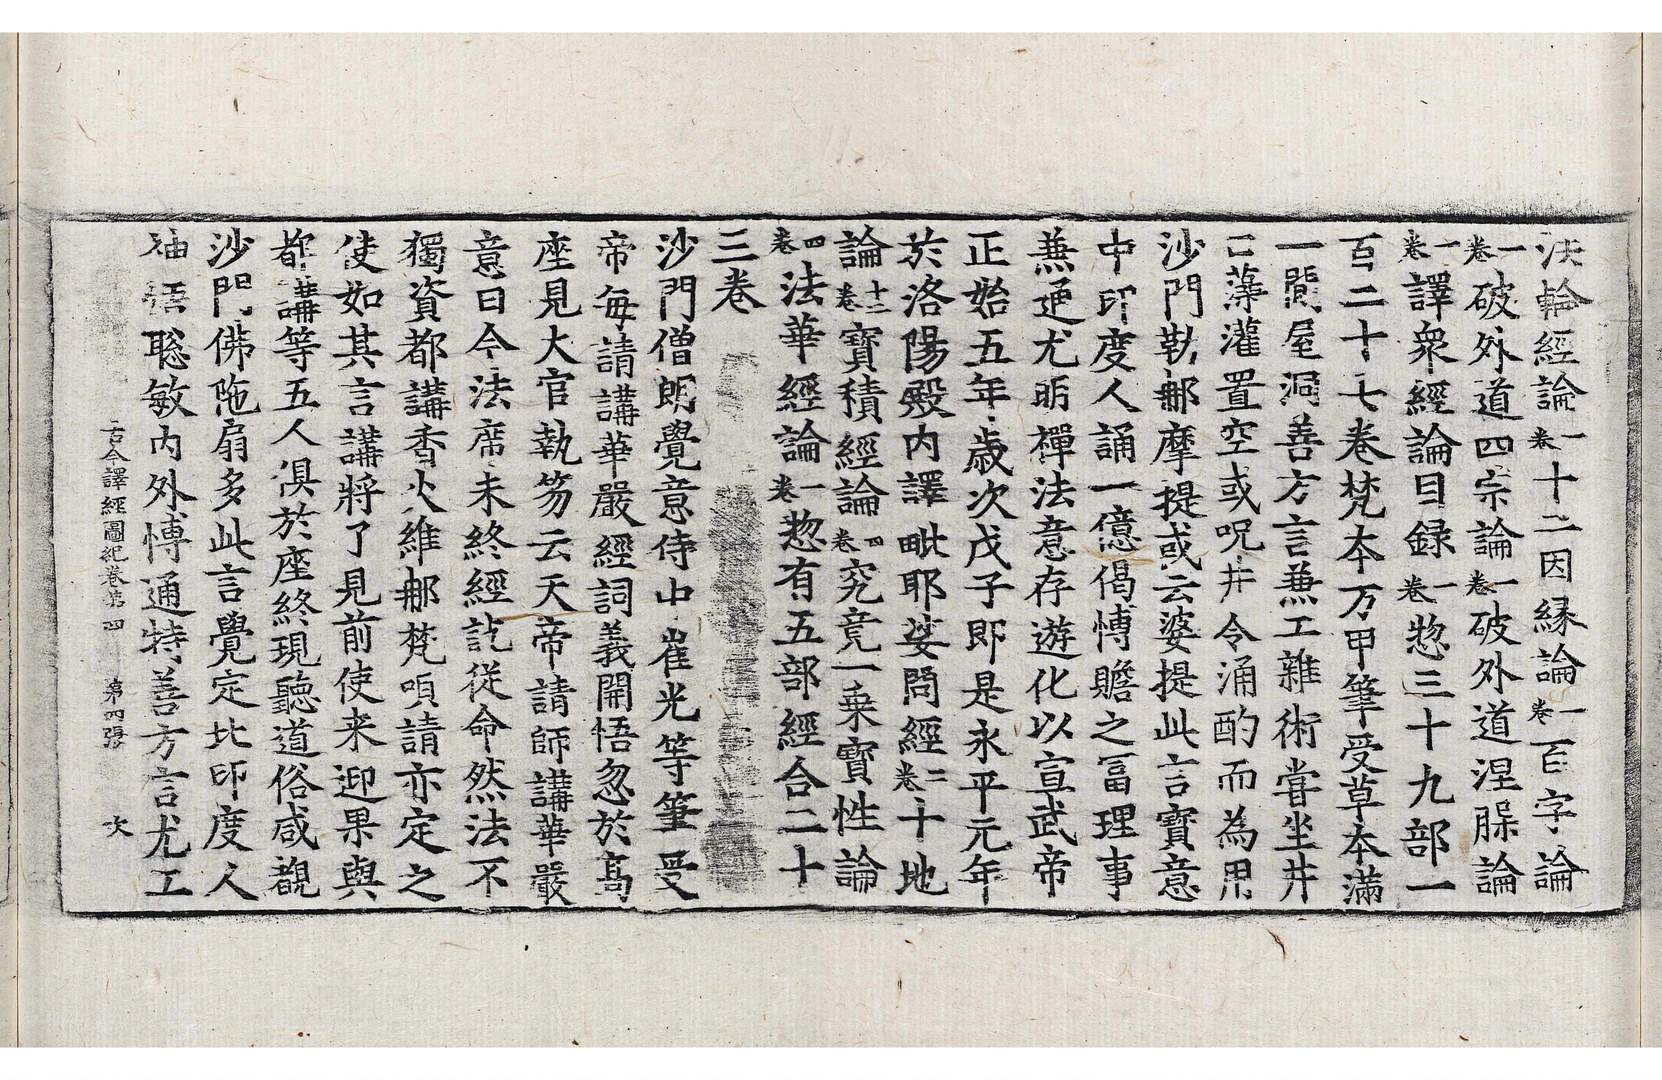 法輪經論一卷十二因縁論一卷百字論
一卷破外道四宗論一卷破外道涅槃論
一卷譯衆經論目録一卷惣三十九部一
百二十七卷梵本万甲筆受草本滿
一閒屋洞善方言兼工雜術嘗坐井
口藻灌置空或呪井令涌酌而為用
沙門勒那摩提或云婆提此言寶意
中印度人誦一億偈博贍之冨理事
兼通尤明禪法意存遊化以宣武帝
正始五年歳次戊子即是永平元年
於洛陽殿内譯毗耶娑問經二卷十地
論十二卷寶積經論四卷究竟一乗寶性論
四卷法華經論一卷惣有五部經合二十
三卷
沙門僧朗覺意侍中崔光等筆受
帝每請講華嚴經詞義開悟忽於髙
座見大官執笏云天帝請師講華嚴
意曰今法席未終經訖從命然法不
獨資都講香火維那梵唄請亦定之
使如其言講將了見前使来迎果與
都講等五人俱於座終現聽道俗咸覩
沙門佛陁扇多此言覺定北印度人
神悟聡敏内外博通特善方言尤工
古今譯經圖紀卷第四 第四張 次